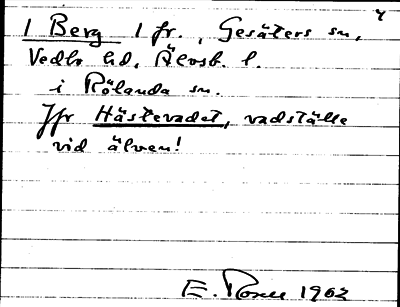 I Berg 1 fr., Gesäters sn,
Vedbo hd, Älvsb. l.
i Rölanda sn.
Jfr Hästevadet, vadställe
vid älven!
E. Rosell 1962